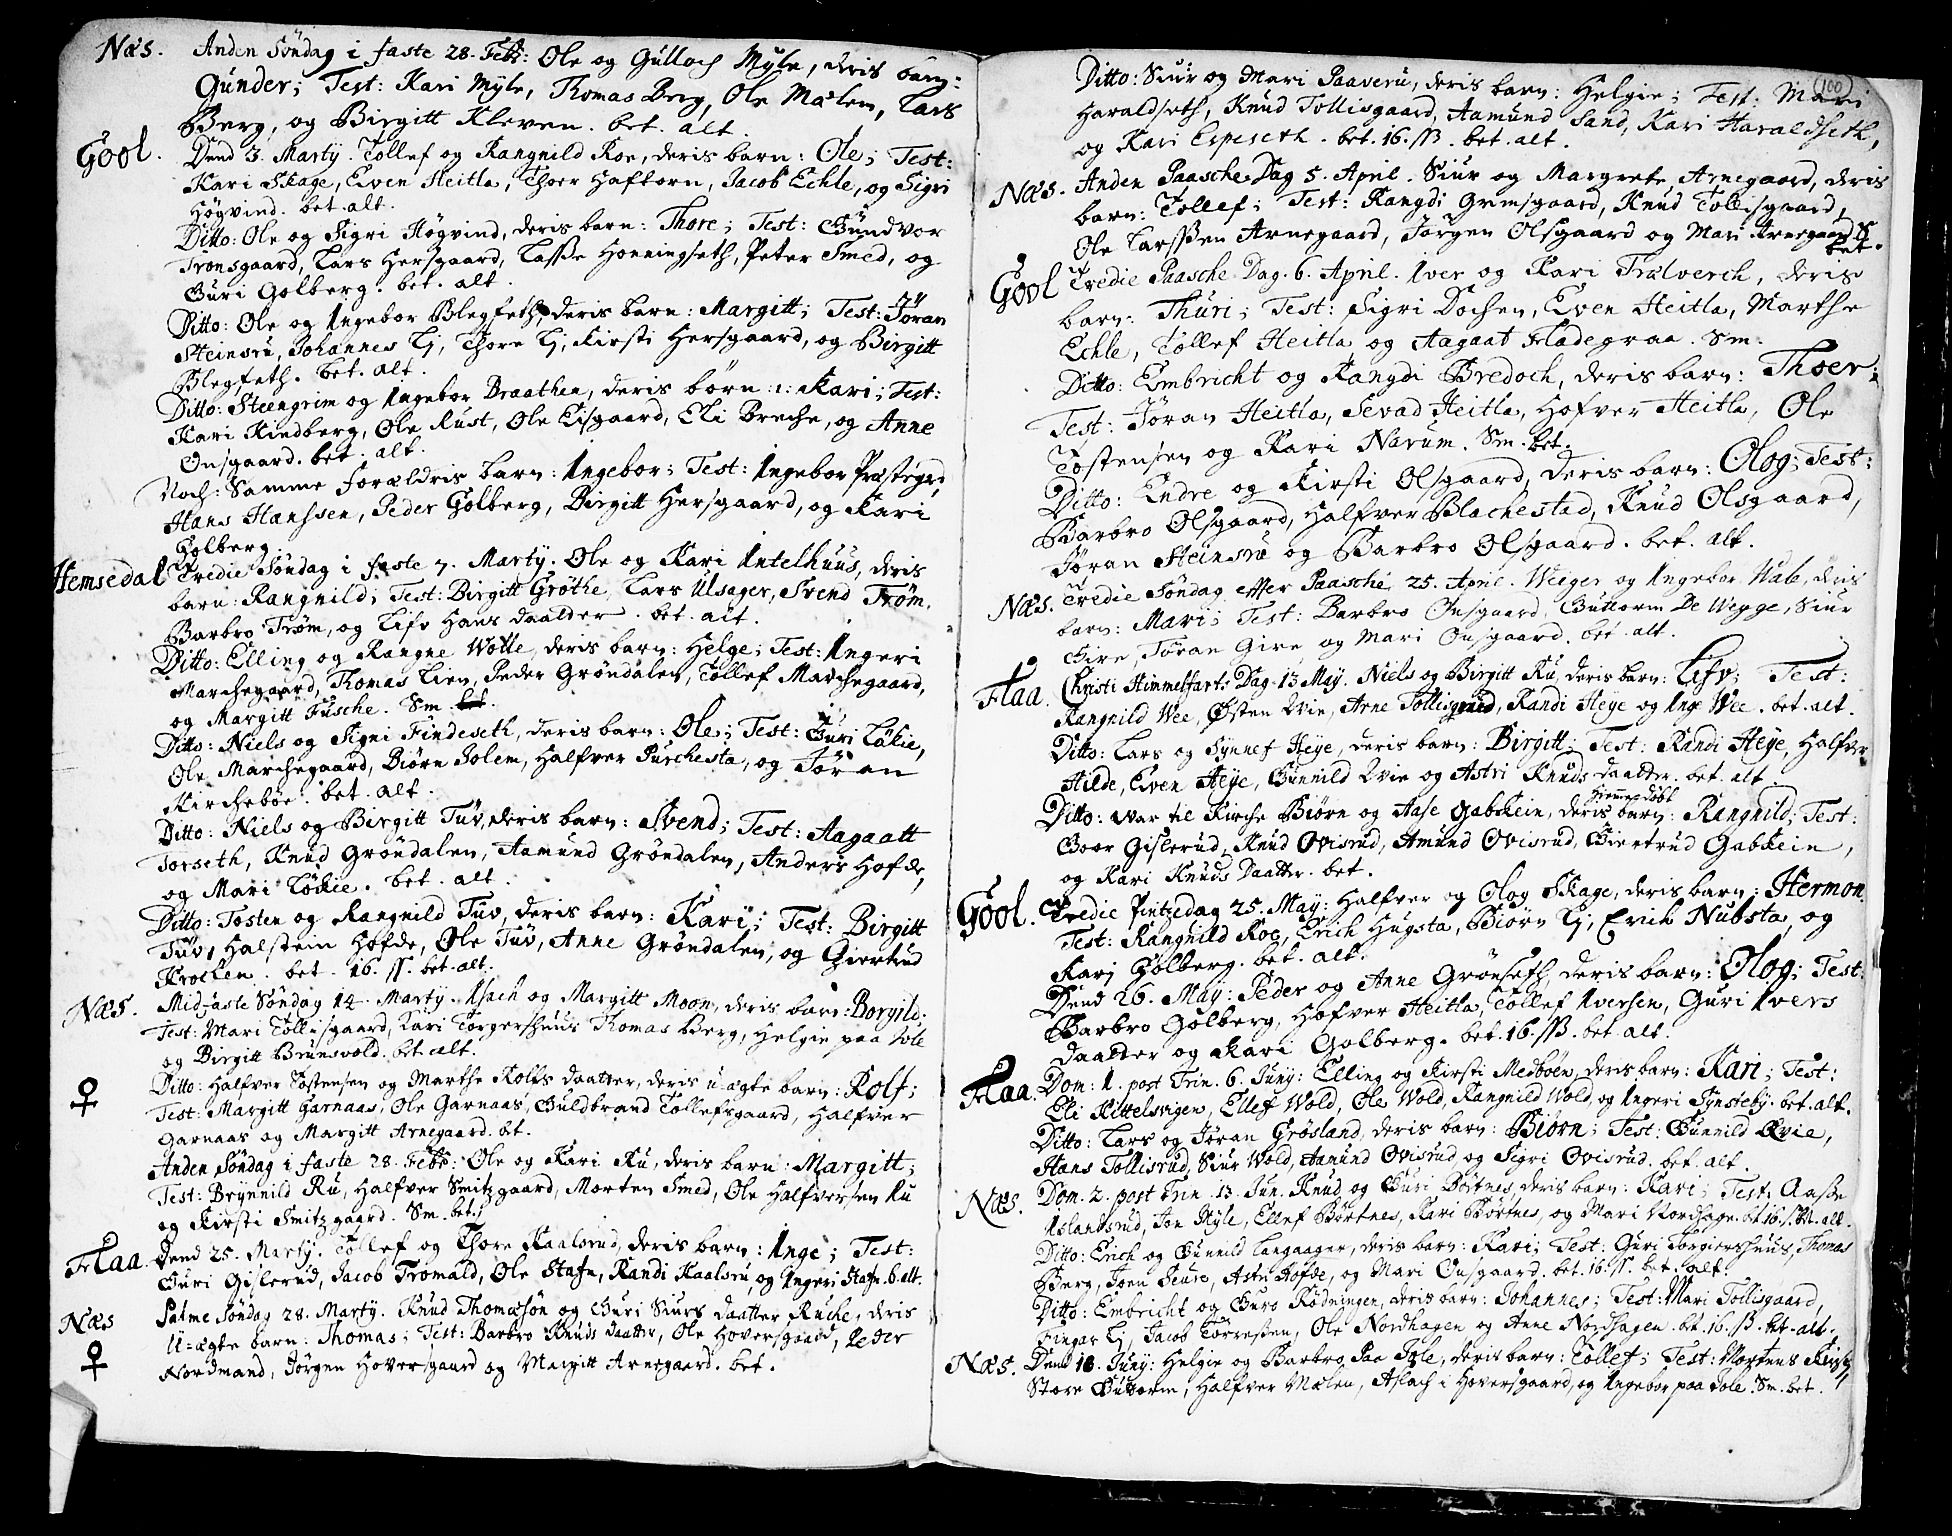 Næs. Anden Söndag i faste 28. Febr: Ole og Gulloch Myle, deris barn:
Gunder; Test: Kari Myle, Thomas Berg, Ole Mælen, Lars
Berg, og Birgitt Kleven. bet. alt.
Gool. Dend 3. Martÿ. Tollef og Rangnild Roe, deris barn: Ole; Test:
Kari Skage, Even Heitla, Thoer Haftorn, Jacob Echle, og Sigri
Högvind. bet. alt.
Ditto: Ole og Sigri Högvind, deris barn: Thore; Test: Gundvor
Tronsgaard, Lars Hersgaard, Lasse Honningseth, Peter Smed, og
Guri Golberg. bet. alt.
Ditto: Ole og Ingebor Blegfeth, deris barn: Margitt; Test: Jöran
Steinsru, Johannes Lj, Thore Lj, Kirsti Hersgaard, og Birgitt
Blegfeth. bet. alt.
Ditto: Steengrim og Ingebor Braathen, deris börn: 1: Kari; Test:
Kari Kindberg, Ole Rust, Ole Eisgaard, Eli Breche, og Anne
Onsgaard. bet. alt.
Noch: Samme forældris barn: Ingebor; Test: Ingebor Præstegrd,
Hans Hanssen, Peder Golberg, Birgitt Hersgaard, og Kari
Golberg
Hemsedal Tredie Söndag i faste 7. Martÿ. Ole og Kari Intelhuus, deris
barn: Rangnild; Test: Birgitt Gröthe, Lars Ulsager, Svend Tröm,
Barbro Tröm, og Lifv Hans daatter. bet. alt.
Ditto: Elling og Rangne Wolle, deris barn: Helge; Test: Ingeri
Marchegaard, Thomas Lien, Peder Gröndalen, Tollef Marchegaard,
og Margitt Fusche. Sm. bet.
Ditto: Niels og Signi Findeseth, deris barn: Ole; Test: Guri Lökie,
Ole Marchegaard, Biörn Solem, Halfver Purchesta, og Jöran
Kirchebøe. bet. alt.
Ditto: Niels og Birgitt Tuv, deris barn: Svend; Test: Aagaatt
Torseth, Knud Gröndalen, Aamund Gröndalen, Anders Hofde,
og Mari Lökie. bet. alt.
Ditto: Tosten og Rangnild Tuv, deris barn: Kari; Test: Birgitt
Tuv, Halstein Hofde, Ole Tuv, Anne Gröndalen, og Giertrud
Krochen. bet. 16. ss. bet. alt.
Næs. Midfaste Söndag 14. Martÿ. Isach og Margitt Moon, deris barn: Borgild;
Test: Mari Tollisgaard, Kari Torgershuus Thomas Berg, Helgie paa Jole
og Birgitt Brunsvold. bet. alt.
♀ Ditto: Halfver Tostensen og Marthe Rolfs daatter, deris u-ægte barn: Rolf;
Test: Margitt Garnaas, Ole Garnaas, Guldbrand Tollefsgaard, Halfver
Garnaas og Margitt Arnegaard. bt.
Anden Söndag i faste 28. Febr: Ole og Kari Ru, deris barn: Margitt;
Test: Brynnild Ru, Halfver Smitzgaard, Morten Smed, Ole Halfversen Ru
og Kirsti Smitzgaard. Sm. bet.
Flaa. Dend 25. Martÿ. Tollef og Thore Kaalsrud, deris barn: Inge; Test:
Guri Gislerud, Jacob Tromald, Ole Stafn, Randi Kaalsru, og Ingeri Stafn. b. alt.
Næs Palme Söndag 28. Martÿ. Knud Thomæsön og Guri Siurs daatter Ruche, deris
♀ U-ægte barn: Thomas; Test: Barbro Knuds daatter, Ole Hoversgaard, Peder
Nordmand, Jörgen Hoversgaard og Margitt Arnegaard. bet.
100
Ditto: Siur og Mari Paaveru, deris barn: Helgie; Test: Mari
Haraldseth, Knud Tollisgaard, Aamund Sand, Kari Haraldseth,
og Kari Espeseth. bet. 16. ss. bet. alt.
Næs. Anden Paasche Dag 5. April. Siur og Margrete Arnegaard, deris
barn: Tollef; Test: Rangdi Grimsgaard, Knud Tollisgaard,
Ole Larssen Arnegaard, Jörgen Olsgaard og Mari Arnegaard S.
bet.
Gool Tredie Paasche Dag. 6. April. Iver og Kari Trælverch, deris
barn: Thuri; Test: Sigri Dochen, Even Heitla, Marthe
Echle, Tollef Heitla og Aagaat Fladegraa. Sm.
Ditto: Embricht og Rangdi Bredoch, deris barn: Thoer;
Test: Jöran Heitla, Sevad Heitla, Hofver Heitla, Ole
Tostensen og Kari Narum. Sm. bet.
Ditto: Endre og Kirsti Olsgaard, deris barn: Olog; Test:
Barbro Olsgaard, Halfver Blachestad, Knud Olsgaard,
Jöran Steinsru og Barbro Olsgaard. bet. alt.
Næs. Tredie Söndag effter Paasche 25. April. Weeger og Ingebor Wale, deris
barn: Mari; Test: Barbro Onsgaard, Guttorm De Wegge, Siur
Gire, Jöran Gire og Mari Onsgaard. bet. alt.
Flaa. Christi Himmelfarts Dag. 13 May. Niels og Birgitt Ru, deris barn: Lifv; Test:
Rangnild Wee, Östen Qvie, Arne Tollisgaard, Randi Heye og Inge Wee. bet. alt.
Ditto: Lars og Synnef Heye, deris barn: Birgitt; Test: Randi Heye, Halfver
Hilde, Even Heye, Gunnild Qvie og Astri Knuds daatter. bet. alt.
hiemmedöbt
Ditto: war til Kirche Biörn og Aase Gabchein, deris barn: Rangnild; Test:
Goor Gislerud, Knud Ovisrud, Amund Ovisrud, Giertrud Gabchein,
og Kari Knuds Daatter. bet.
Gool. Tredie Pintzedag 25. May: Halfver og Olog Skage, deris barn: Hermon.
Test: Rangnild Roe, Erich Hugsta, Biörn Lj, Erich Nubsta, og
Kari Golberg. bet. alt.
Dend 26. May: Peder og Anne Grönseth, deris barn: Olog; Test:
Barbro Golberg, Hofver Heitla, Tollef Iversen, Guri Ivers
Daatter og Kari Golberg. bet. 16. ss. bet. alt.
Flaa. Dom: 1. post Trin. 6. Juny: Elling og Kirsti Medböen, deris barn: Kari; Test:
Eli Kittelsvigen, Ellef Wold, Ole Wold, Rangnild Wold, og Ingeri Synsteby. bet. alt.
Ditto: Lars og Jöran Grösland, deris barn: Biörn; Test: Gunnild Qvie,
Hans Tollisrud, Siur Wold, Aamund Ovisrud og Sigri Ovisrud. bet. alt.
Næs. Dom. 2. post Trin. 13. Jun. Knud og Guri Börtnes, deris barn: Kari; Test: Aasse
Islandsrud, Jon Myle, Ellef Börtnes, Kari Börtnes, og Mari Nordhage. bt. 16. ss. bt. alt.
Ditto: Erich og Gunnild Langaager, deris barn: Kari; Test: Guri Torgiershuus, Thomas
Berg, Joen Seure, Astri Hofde, og Mari Onsgaard. bet. 16. ss. bet. alt.
Ditto: Embricht og Guro Rödningen, deris barn: Johannes; Test: Mari Tollisgaard,
Fingar Lj, Jacob Torresen, Ole Nordhagen og Anne Nordhagen. bt. 16. ss. bet. alt.
Næs. Dend 18. Juny: Helgie og Barbro Paa Jole, deris barn: Tollef; Test: Mortens Kirsti,
Store Guttorm, Halfver Mælen, Aslach i Hoversgaard, og Ingebor paa Jole. Sm. bet.